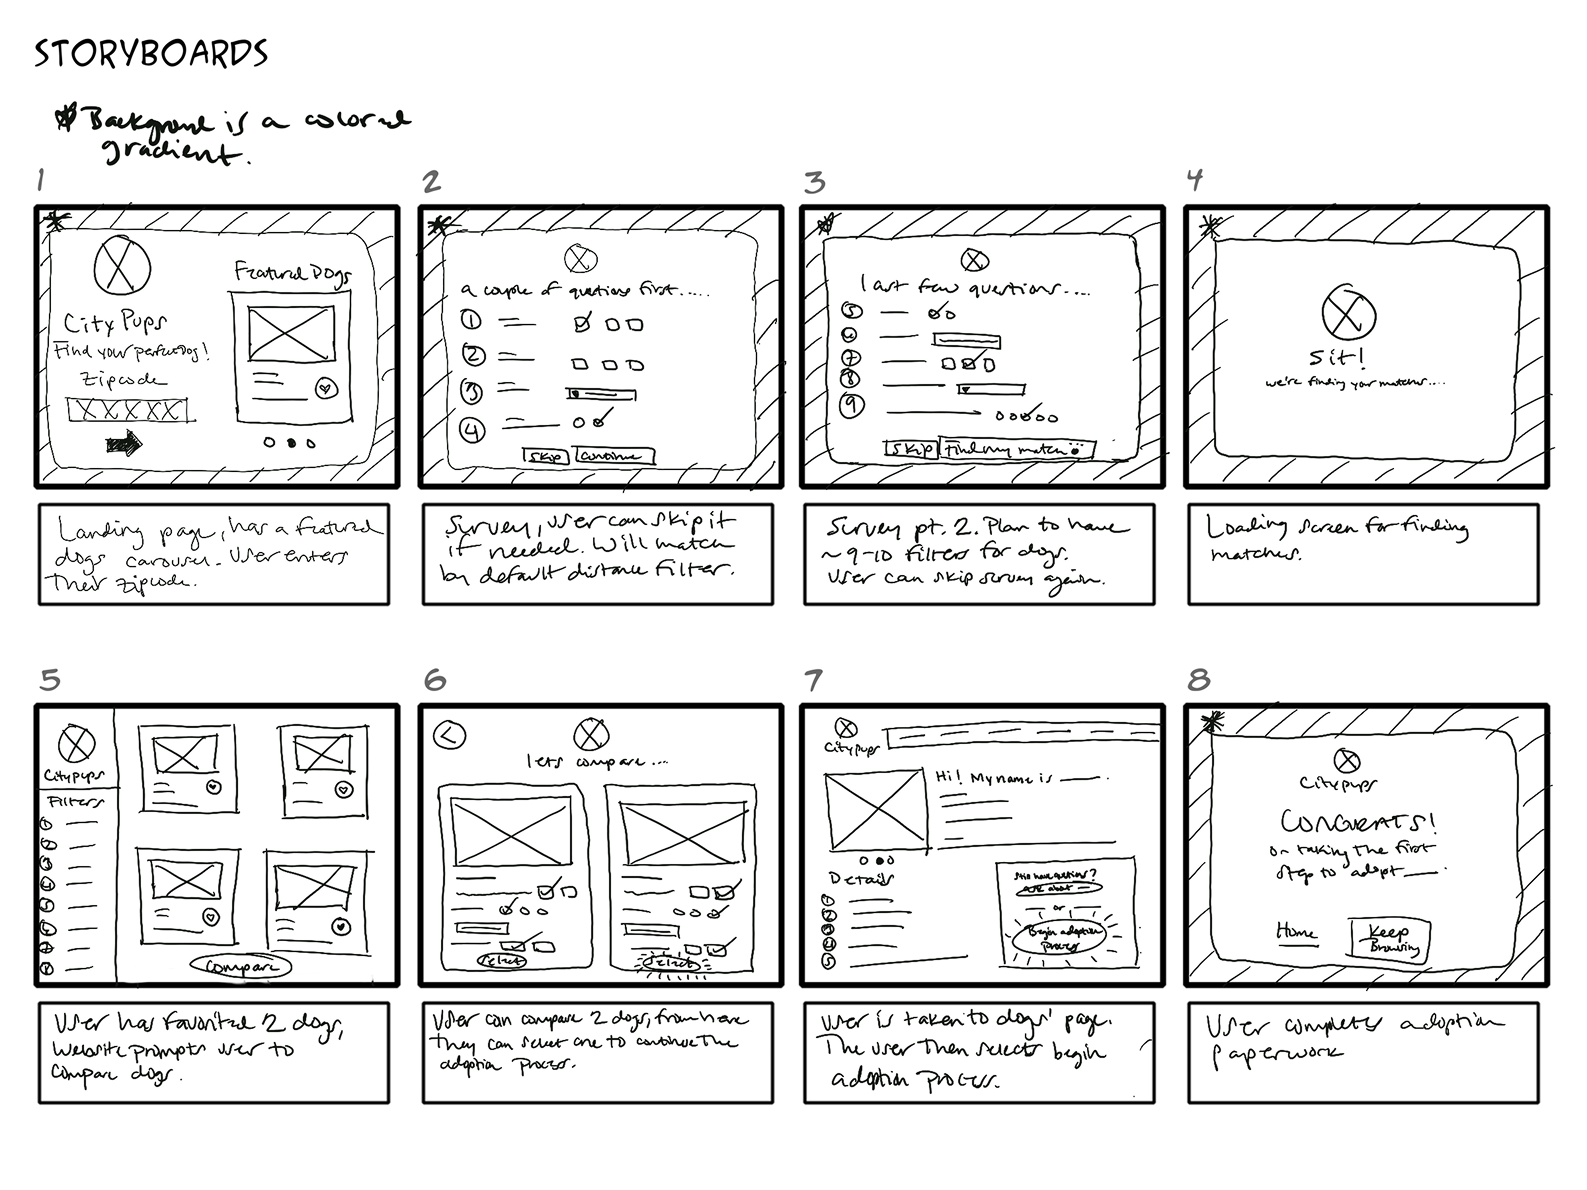 STORYBOARDS
* Background is a colored
gradient.
1
City Pups
Find your perfect Dog!
Zipcode
XXXXX
Featured Dogs
Landing page, has a featured
dogs carousel. User enters
their zipcode.
2
a couple of questions first.....
1
2
3
4
Skip
Continue
Survey, user can skip it
if needed. Will match
by default distance filter.
3
last few questions....
5
6
7
8
9
Skip
Find my match
Survey pt. 2. Plan to have
~9-10 filters for dogs.
User can skip survey again.
4
Sit!
we're finding your matches....
Loading screen for finding
matches.
5
Citypups
Filters
1
2
3
4
5
6
7
8
Compare
User has favorited 2 dogs,
website prompts user to
compare dogs.
6
lets compare...
Select
Select
User can compare 2 dogs, from here
they can select one to continue the
adoption process.
7
Citypups
Hi! My name is ___.
Details
1
2
3
4
5
Still have questions?
ask about —
or
Begin adoption
process
User is taken to dogs' page.
The user then selects begin
adoption process.
8
Citypups
CONGRATS!
on taking the first
step to adopt ___.
Home
Keep
Browsing
User completes adoption
paperwork